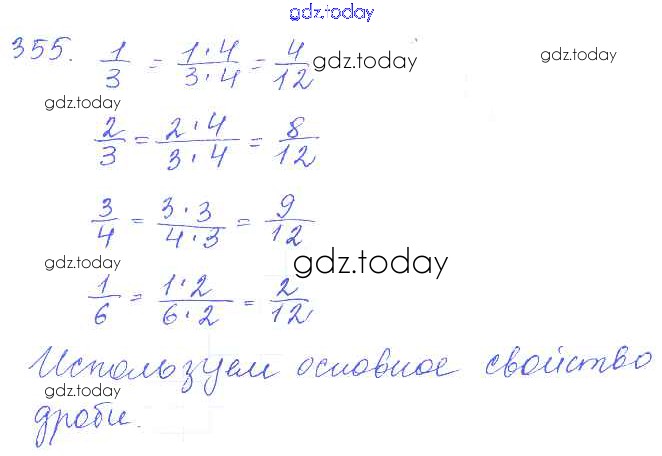 gdz.today
355. 1/3 = 1·4/3·4 = 4/12 gdz.today gdz.today
gdz.today
2/3 = 2·4/3·4 = 8/12
3/4 = 3·3/4·3 = 9/12
gdz.today gdz.today
1/6 = 1·2/6·2 = 2/12
Используем основное свойство
gdz.today
дроби.